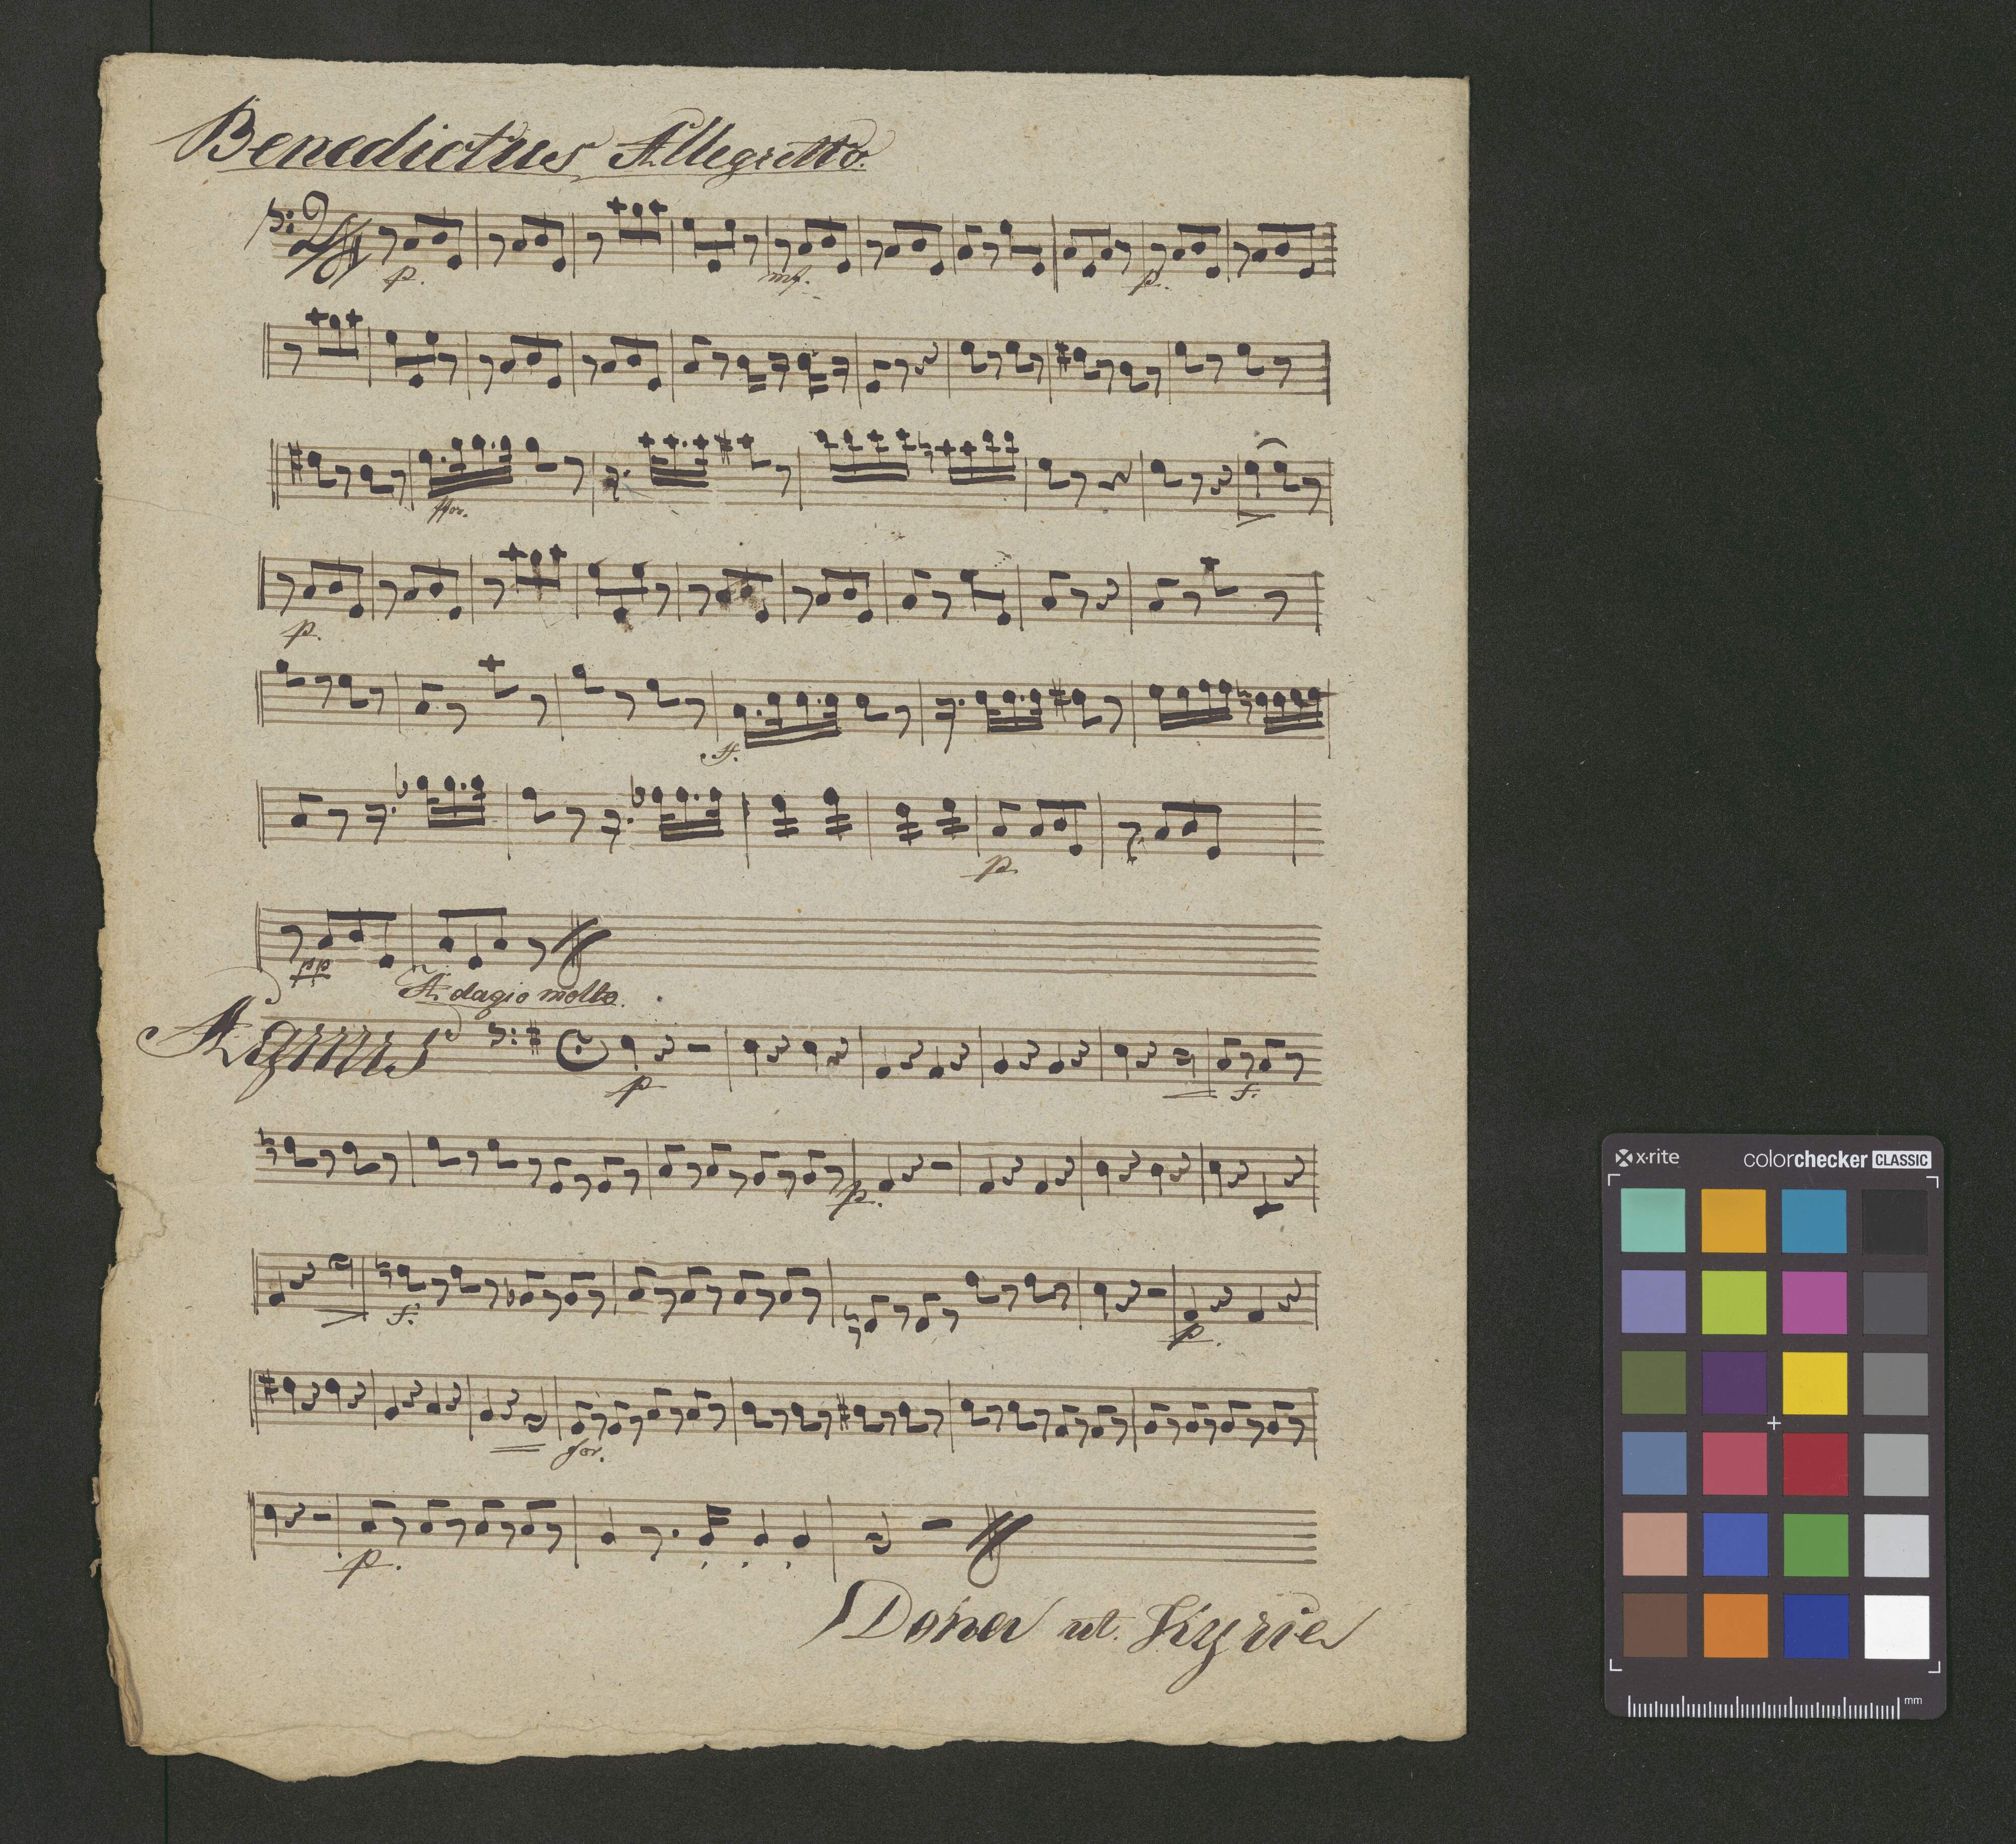 Benedictus Allegretto.
2/4
p. mf. p.
ffor.
p.
ff.
p
pp
Adagio molto.
Agnus
p f.
p.
f. p.
for.
p.
Dona ut. Kyrie
x·rite colorchecker CLASSIC
mm